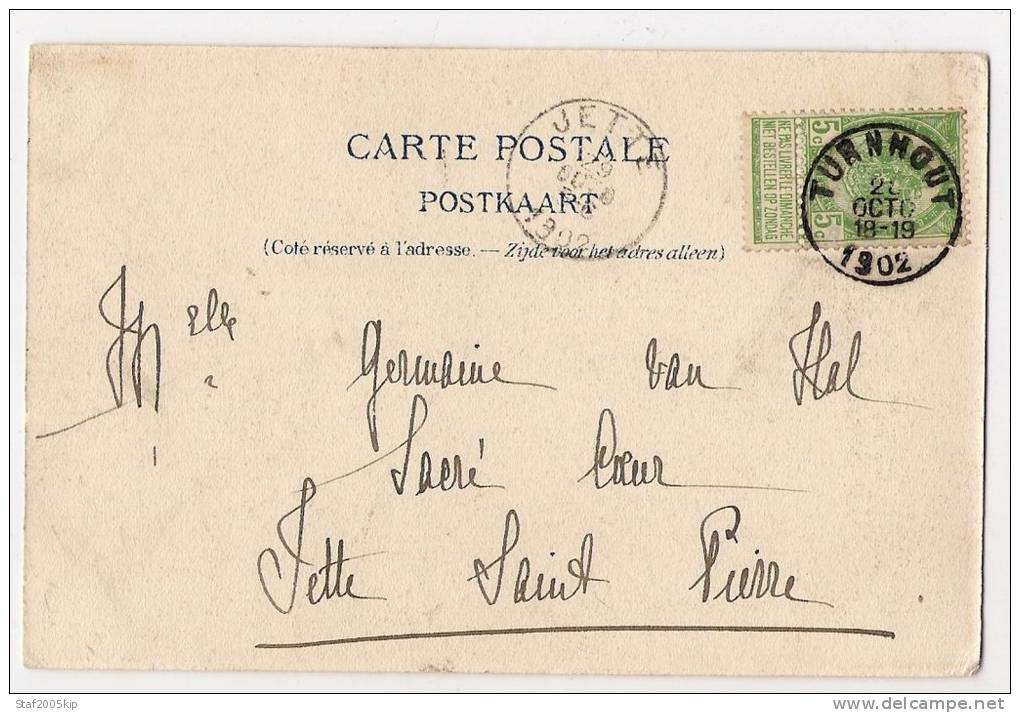 CARTE POSTALE
POSTKAART
(Coté réservé à l'adresse. — Zijde voor het adres alleen)
JETTE
1902
5c 5c
NE PAS LIVRER LE DIMANCHE
NIET BESTELLEN OP ZONDAG
TURNHOUT
OCTO
18-19
1902
Melle Germaine Van Hal
Sacré Cœur
Jette Saint Pierre
Staf2005kip
delcampe.net